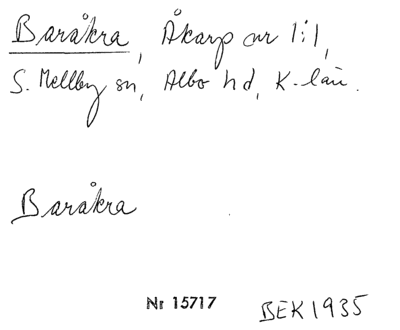 Baråkra, Åkarp nr 1:1,
S. Mellby sn, Albo hd, K-län.
Baråkra
Nr 15717 BEK 1935